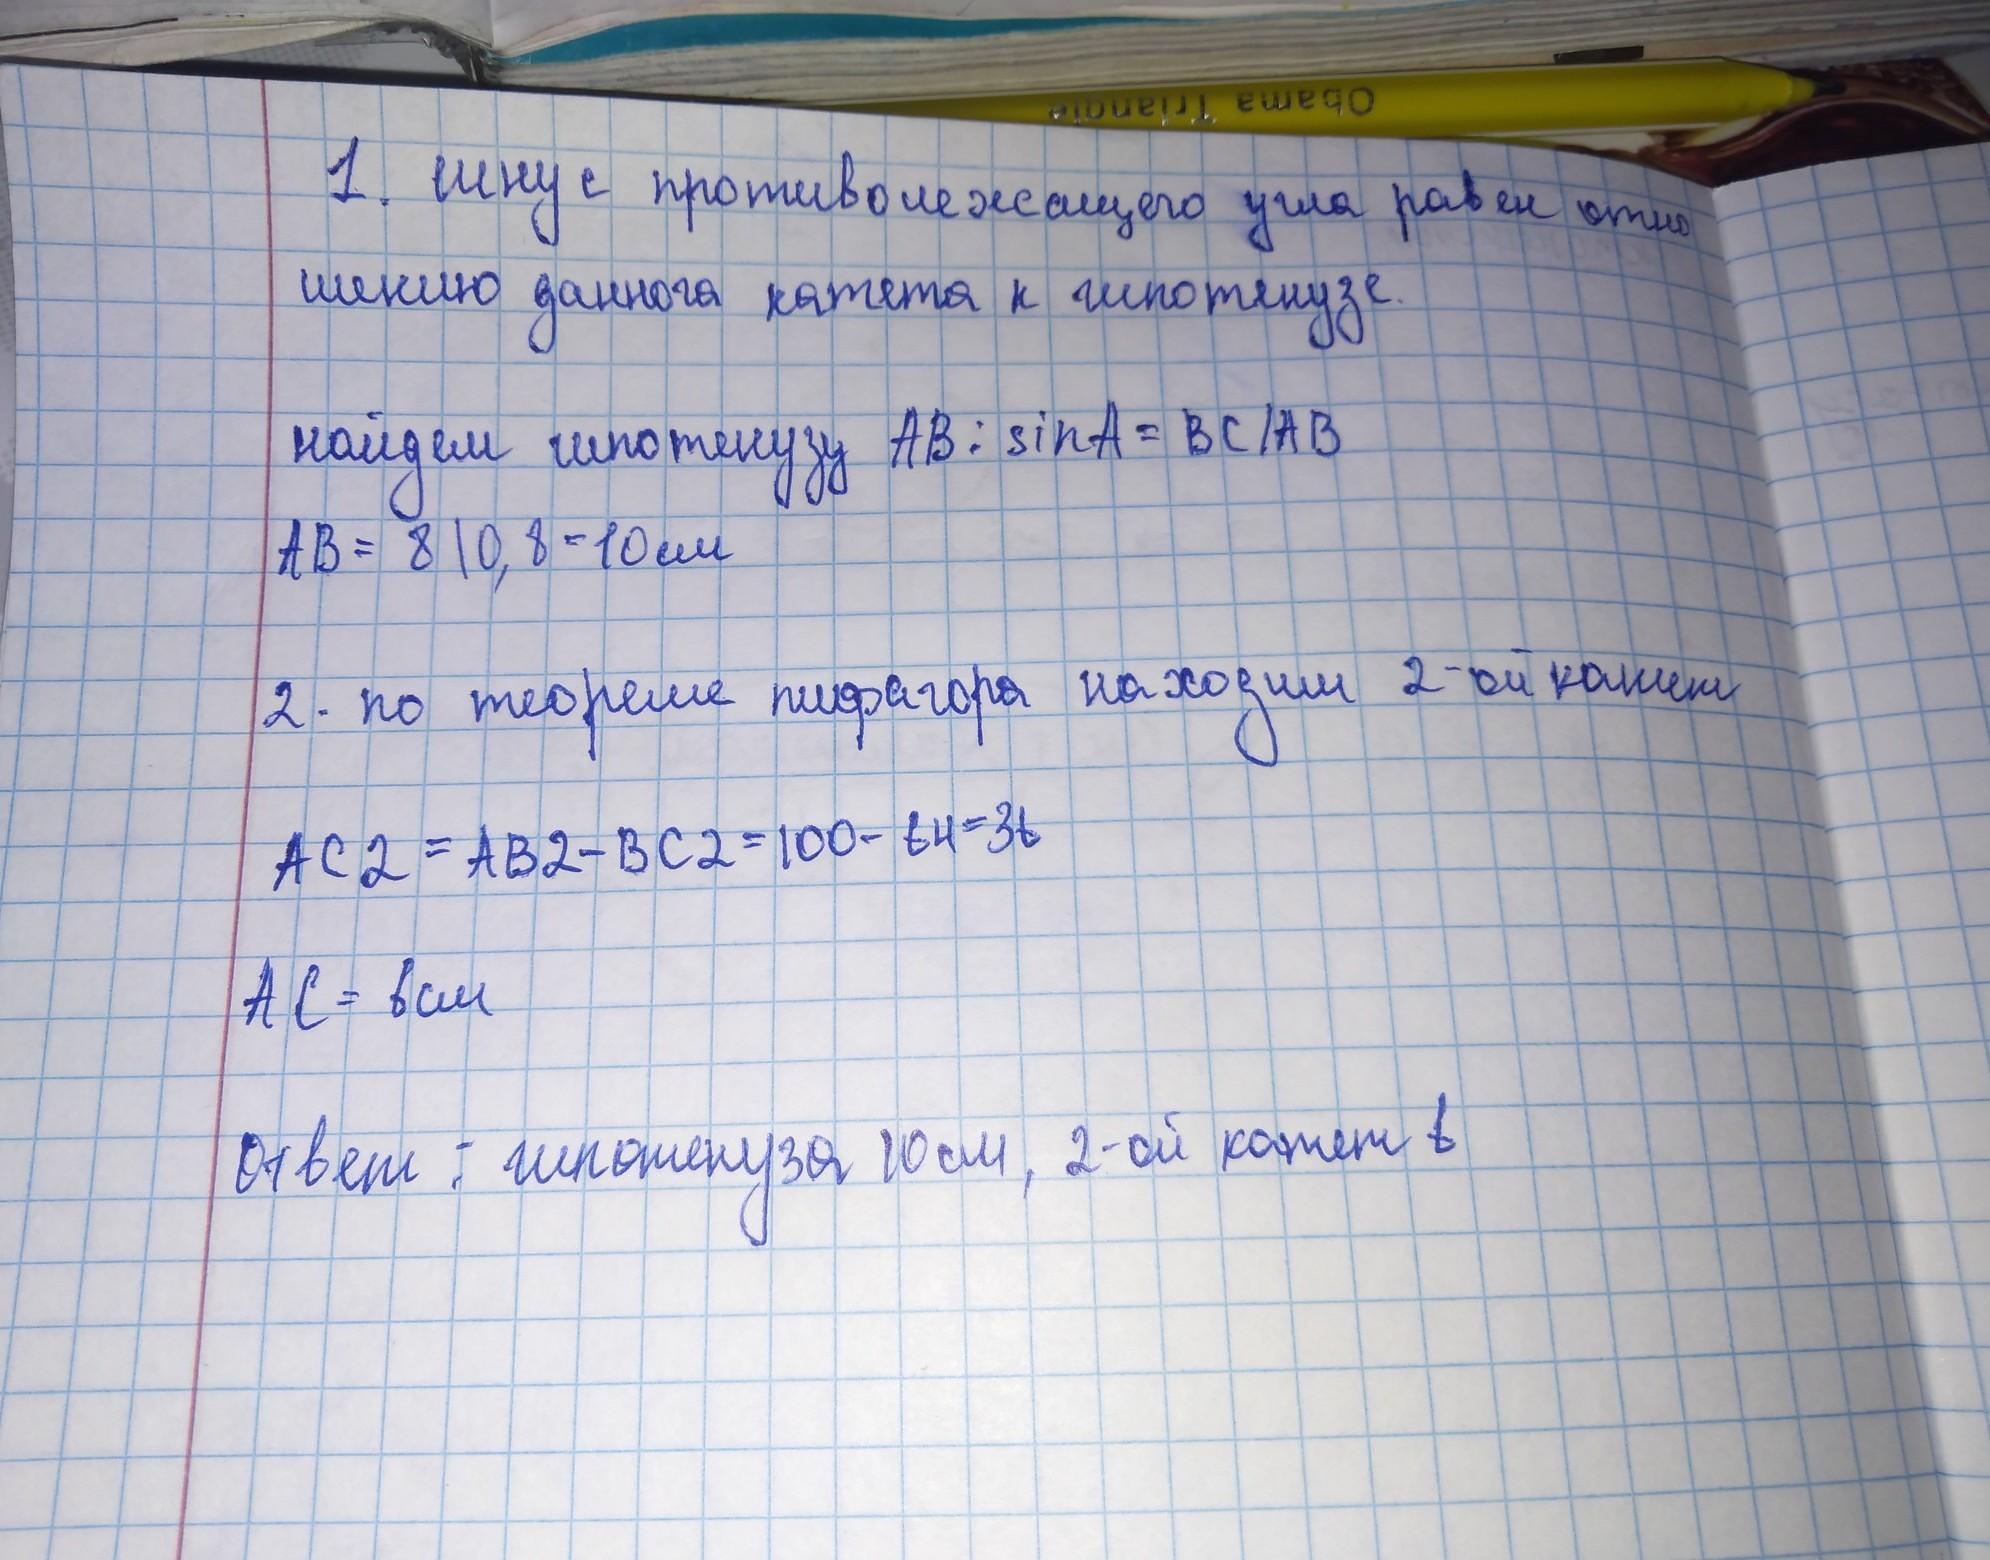 Obama Triangle
1. синус противолежащего угла равен отно
шению данного катета к гипотенузе.
найдем гипотенузу AB: sinA = BC/AB
AB = 8/0,8 = 10 см
2. по теореме пифагора находим 2-ой катет
AC2 = AB2 - BC2 = 100 - 64 = 36
AC = 6 см
Ответ: гипотенуза 10 см, 2-ой катет 6